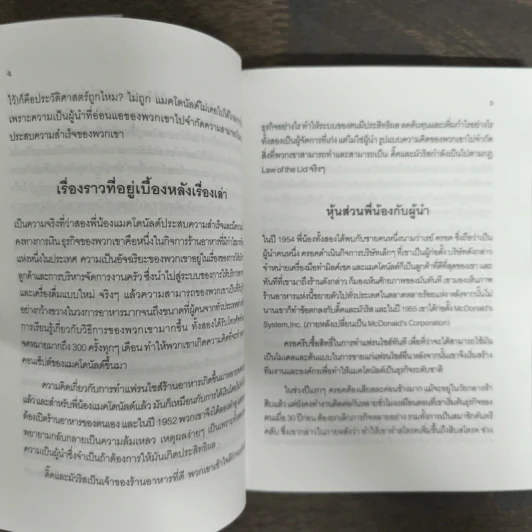 4
ไร้ก็คือประวัติศาสตร์ถูกไหม? ไม่ถูก แมคโดนัลด์ไม่เคยไปได้
เพราะความเป็นผู้นำที่อ่อนแอของพวกเขาไปจำกัดความสามารถ
ประสบความสำเร็จของพวกเขา
เรื่องราวที่อยู่เบื้องหลังเรื่องเล่า
เป็นความจริงที่ว่าสองพี่น้องแมคโดนัลด์ประสบความสำเร็จและมี
คงทางการเงิน ธุรกิจของพวกเขาคือหนึ่งในกิจการร้านอาหารที่
แห่งหนึ่งในประเทศ ความเป็นอัจฉริยะของพวกเขาอยู่ในเรื่องของการให้บริการ
ลูกค้าและการบริหารจัดการงานครัว ซึ่งนำไปสู่ระบบของการให้บริการ
และเครื่องดื่มแบบใหม่ จริงๆ แล้วความสามารถของพวกเขาเป็นที่
อย่างกว้างขวางในวงการอาหารมากจนถึงขนาดที่ผู้คนจากทั่วประเทศ
การเรียนรู้เกี่ยวกับวิธีการของพวกเขามากขึ้น ทั้งสองได้รับโทรศัพท์
จดหมายมากถึง 300 ครั้งทุกๆ เดือน ทำให้พวกเขาเกิดความคิดที่จะ
คอนเซ็ปต์ของแมคโดนัลด์ขึ้นมา
ความคิดเกี่ยวกับการทำแฟรนไชส์ร้านอาหารเกิดขึ้นมา
แล้ว และสำหรับพี่น้องแมคโดนัลด์แล้ว มันก็เหมือนกับการได้เงิน
ต้องเปิดร้านอาหารของตนเอง และในปี 1952 พวกเขาจึงได้
พยายามกลับกลายเป็นความล้มเหลว เหตุผลง่ายๆ
ความเป็นผู้นำซึ่งจำเป็นถ้าต้องการให้มันเกิดประสิทธิผล
ดิ๊คและมัวริสเป็นเจ้าของร้านอาหารที่ดี พวกเขาเข้าใจ
5
ธุรกิจอย่างไร ทำให้ระบบของตนมีประสิทธิผล ลดต้นทุนและเพิ่มกำไรอย่างไร
ทั้งสองเป็นผู้จัดการที่เก่ง แต่ไม่ใช่ผู้นำ รูปแบบความคิดของพวกเขาไปจำกัด
สิ่งที่พวกเขาสามารถทำและสามารถเป็น ดิ๊คและมัวริสกำลังเป็นไปตามกฎ
Law of the Lid จริงๆ
หุ้นส่วนพี่น้องกับผู้นำ
ในปี 1954 พี่น้องทั้งสองได้พบกับชายคนหนึ่งนามว่าเรย์ ครอค ซึ่งถือว่าเป็น
ผู้นำคนหนึ่ง ครอคดำเนินกิจการบริษัทเล็กๆ ที่เขาเป็นผู้ก่อตั้ง บริษัทดังกล่าว
จำหน่ายเครื่องมือทำมิลค์เชค และแมคโดนัลด์ก็เป็นลูกค้าที่ดีที่สุดของเขา และ
ทันทีที่เขามาถึงร้านดังกล่าว ก็มองเห็นศักยภาพของมันทันที เขามองเห็นภาพ
ร้านอาหารแห่งนี้ขยายตัวไปทั่วประเทศในตลาดหลายร้อยแห่ง หลังจากนั้นไม่
นานเขาก็ทำข้อตกลงกับดิ๊คและมัวริส และในปี 1955 เขาได้ก่อตั้ง McDonald's
System,Inc. (ภายหลังเปลี่ยนเป็น McDonald's Corporation)
ครอครีบซื้อสิทธิ์ในการทำแฟรนไชส์ทันที เพื่อที่ว่าจะได้สามารถใช้มัน
เป็นโมเดลและต้นแบบในการขายแฟรนไชส์อื่น หลังจากนั้นเขาจึงเริ่มสร้าง
ทีมงานและองค์กรเพื่อทำให้แมคโดนัลด์เป็นธุรกิจระดับชาติ
ในช่วงปีแรกๆ ครอคต้องเสียสละค่อนข้างมาก แม้จะอยู่ในวัยกลางห้า
สิบแล้ว แต่ยังคงทำงานติดต่อกันหลายชั่วโมงเหมือนตอนที่เขาเริ่มต้นธุรกิจของ
ตนเมื่อ 30 ปีก่อน ต้องยกเลิกภารกิจหลายอย่าง รวมทั้งการเป็นสมาชิกคันทรี่
คลับ ซึ่งเขากล่าวในภายหลังว่า ทำให้เขาทำสโตรคเพิ่มขึ้นถึงสิบสโตรค ช่วง